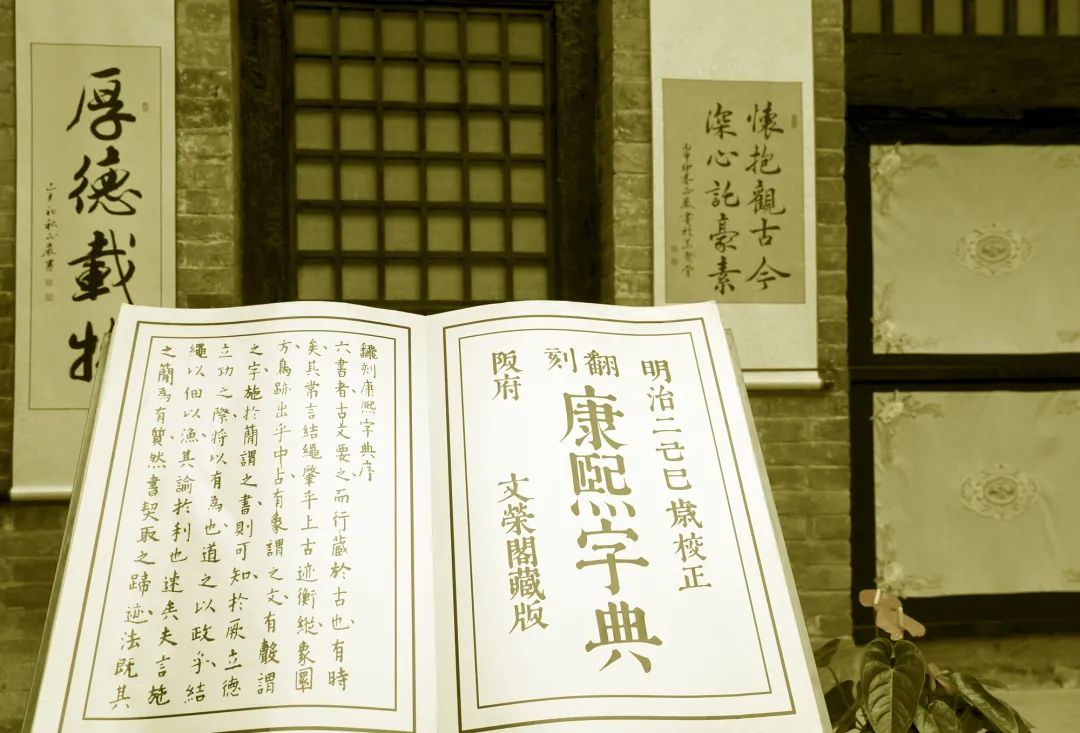 懷抱觀古今
深心託豪素
厚德載物
明治二 巳歳校正
翻刻
康熙字典
阪府 文榮閣藏版
刻康熙字典序
六書者古文要之而行蔵於古也有時
矣其常言結繩肇乎上古迹衡縱象圖
方鳥跡出乎中占有象謂之文有骰謂
之字施於簡謂之書則可知於厥立德
立功之際将以有為也道之以政乎結
繩以佃以漁其論於利也速矣夫言施
之簡為有質然書契取之蹄迹法既其